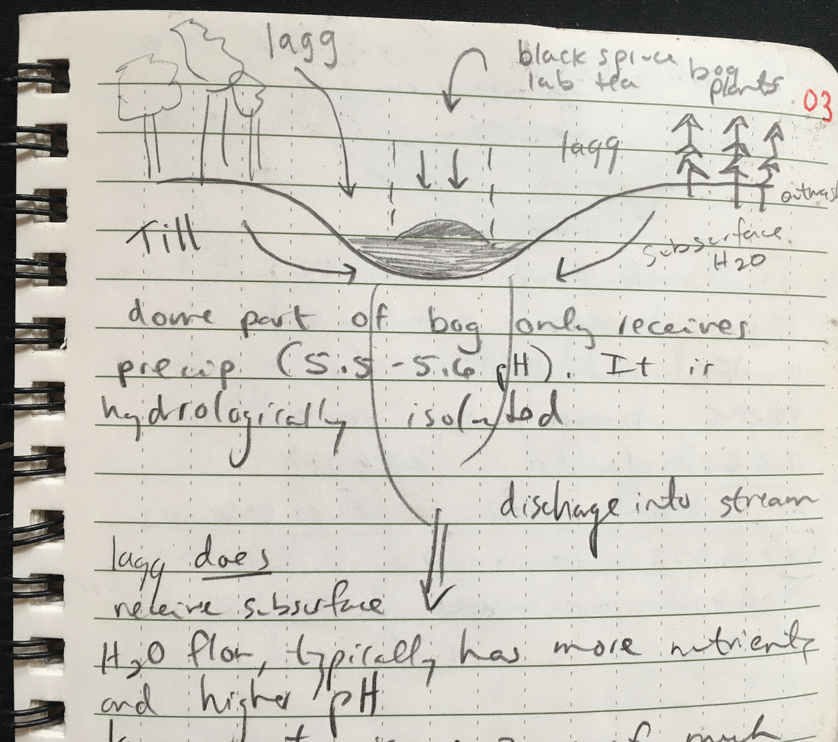 lagg
black spruce
lab tea
bog
plants
03
lagg
outwash
Till
subsurface
H2O
dome part of bog only receives
precip (5.5-5.6 pH). It is
hydrologically isolated
discharge into stream
lagg does
receive subsurface
H2O flow, typically has more nutrients
and higher pH
of much